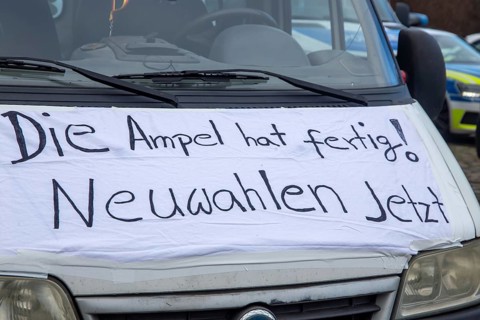 Die Ampel hat fertig!
Neuwahlen Jetzt